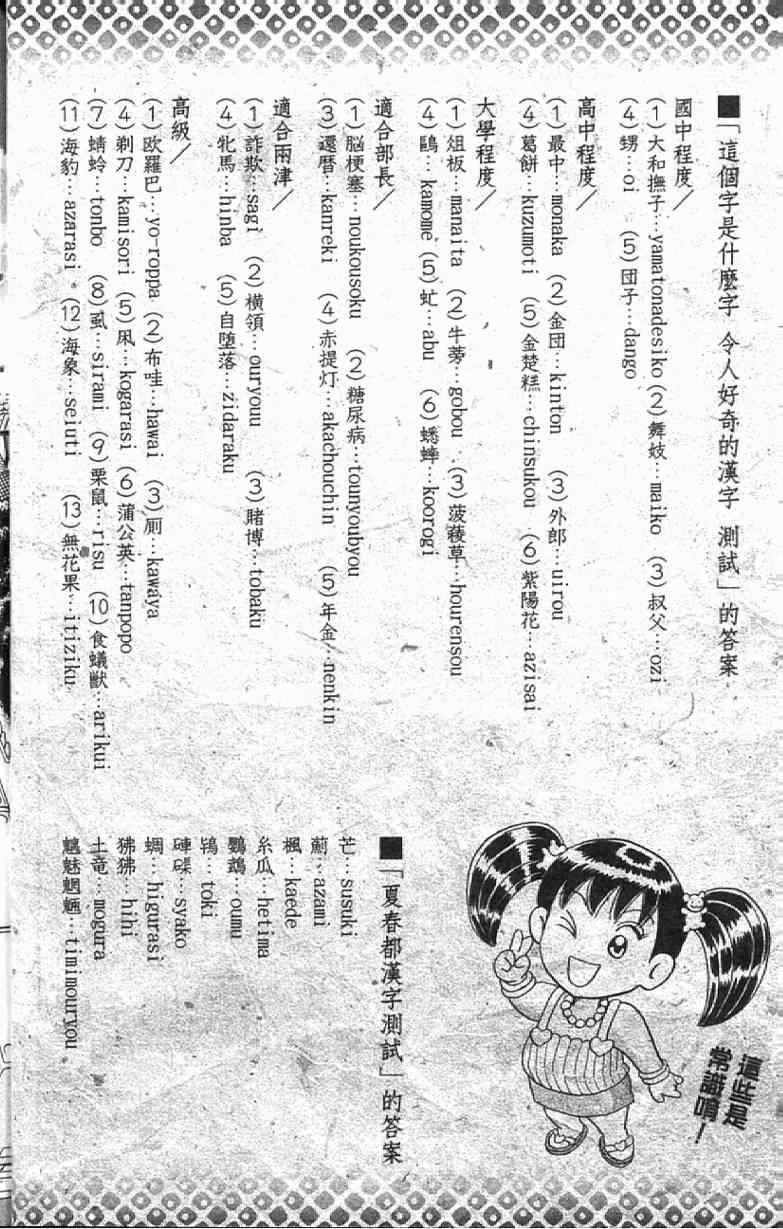 ■「這個字是什麼字 令人好奇的漢字 測試」的答案
國中程度／
(1)大和撫子…yamatonadesiko (2)舞妓…maiko (3)叔父…ozi
(4)甥…oi (5)団子…dango
高中程度／
(1)最中…monaka (2)金団…kinton (3)外郎…uirou
(4)葛餅…kuzumoti (5)金楚糕…chinsukou (6)紫陽花…azisai
大學程度／
(1)俎板…manaita (2)牛蒡…gobou (3)菠薐草…hourensou
(4)鷗…kamome (5)虻…abu (6)蟋蟀…koorogi
適合部長／
(1)脳梗塞…noukousoku (2)糖尿病…tounyoubyou
(3)還暦…kanreki (4)赤提灯…akachouchin (5)年金…nenkin
適合兩津／
(1)詐欺…sagi (2)横領…ouryouu (3)賭博…tobaku
(4)牝馬…hinba (5)自墮落…zidaraku
高級／
(1)欧羅巴…yo-roppa (2)布哇…hawai (3)厠…kawaya
(4)剃刀…kamisori (5)凩…kogarasi (6)蒲公英…tanpopo
(7)蜻蛉…tonbo (8)虱…sirami (9)栗鼠…risu (10)食蟻獣…arikui
(11)海豹…azarasi。(12)海象…seiuti (13)無花果…itiziku
這些是
常識唷！
■「夏春都漢字測試」的答案
芒…susuki
薊…azami
楓…kaede
糸瓜…hetima
鸚鵡…oumu
鴇…toki
硨磲…syako
蜩…higurasi
狒狒…hihi
土竜…mogura
魑魅魍魎…timimouryou